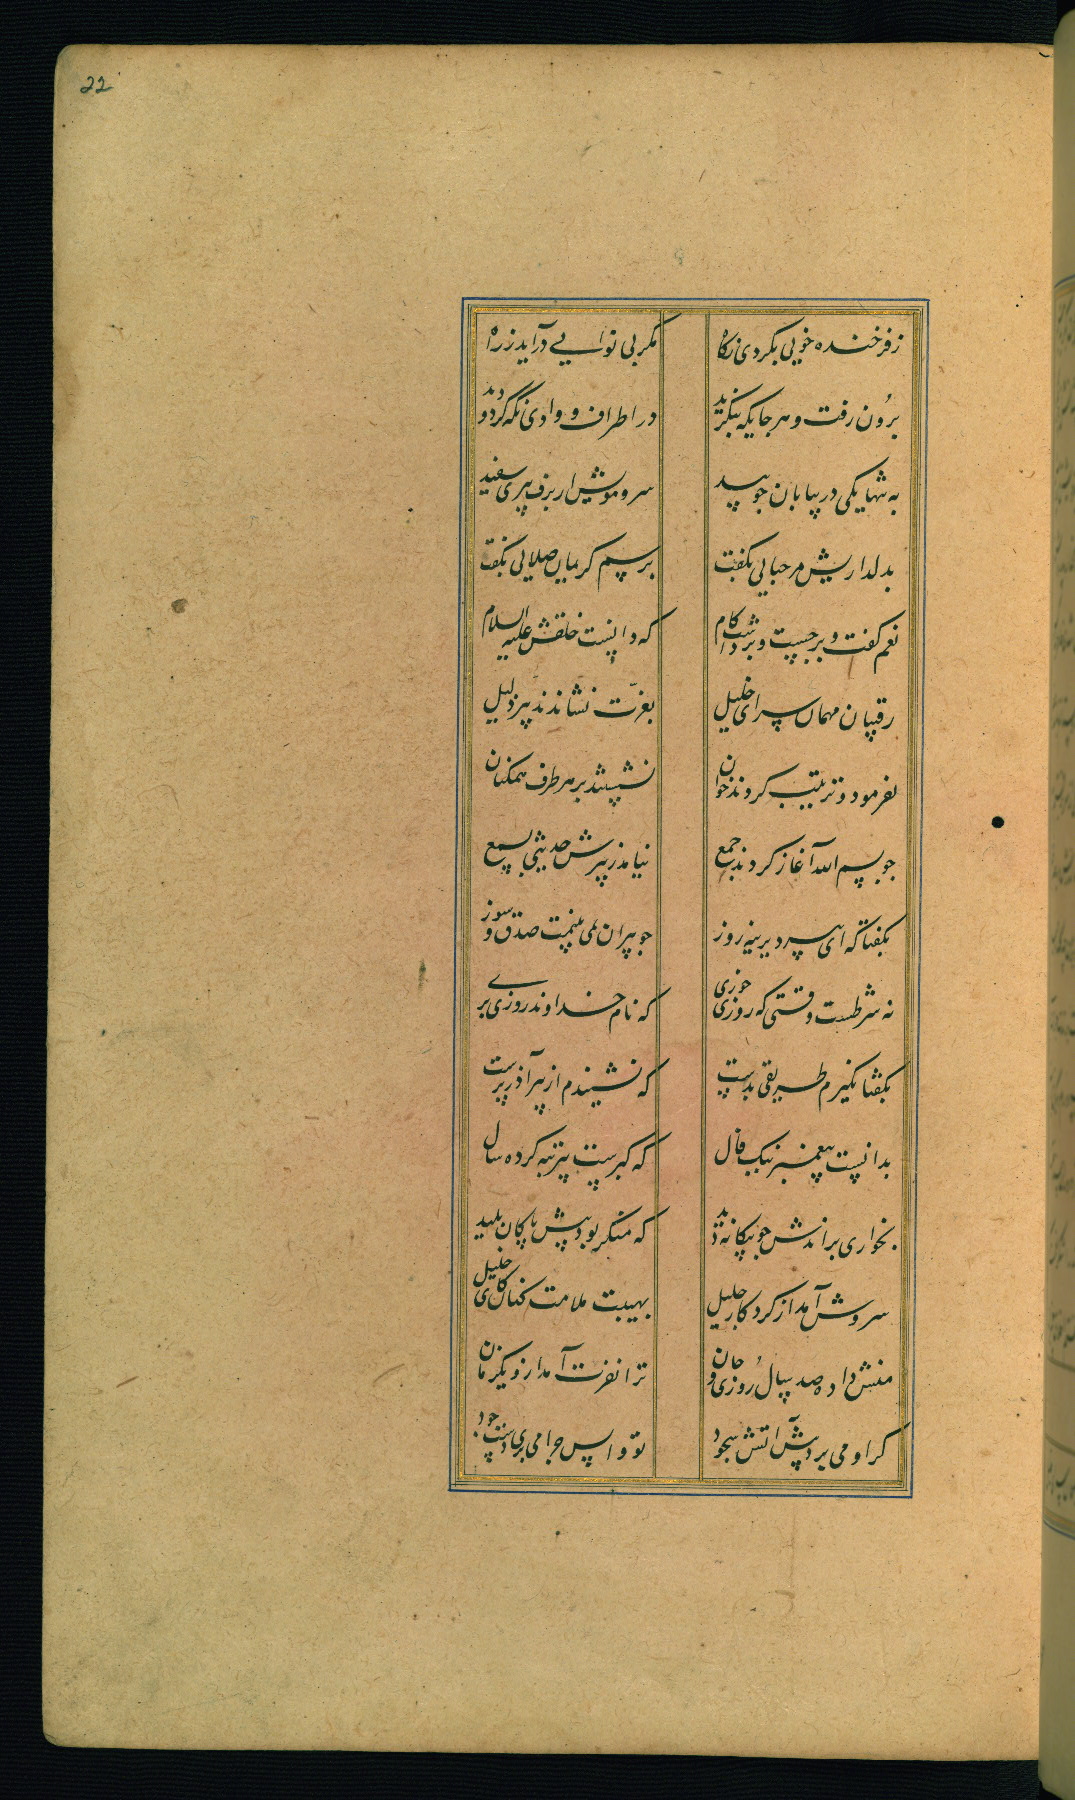 22
ز فرخنده خویی بکردی نگاه مگر بی نوایی درآید ز راه
برون رفت و هر جایکه بنکرید در اطراف و وادی نگه کرد و دید
به تنها یکی در بیابان جو بید سر و مویش از برف پیری سفید
بدلداریش مرحبایی بکفت برسم کریمان صلایی بکفت
نعم کفت و برجست و برداشت کام که دانست خلقش علیه السلام
رقیبان مهمان سرای خلیل بعزّت نشاندند پیر ذلیل
بفرمود و ترتیب کردند خوان نشستند بر هر طرف همکنان
جو بسم الله آغاز کردند جمع نیامد ز پیرش حدیثی بسمع
بکفتا که ای پیر دیرینه روز جو پیران نمی بینمت صدق و سوز
نه شرطست وقتی که روزی خوری که نام خداوند روزی بری
بکفتا نگیرم طریقی بدست که نشنیدم از پیر آذر پرست
بدانست پیغمبر نیک فال که کبرست پیر تبه کرده سال
بخواری براندش جو بیکانه دید که منکر بود پیش پاکان پلید
سروش آمد از کردکار جلیل بهیبت ملامت کنان کای خلیل
منش داده صد سال روزی و جان ترا نفرت آمد ازو یکزمان
کر او می برد پیش آتش سجود تو واپس جرا می بری دست جود